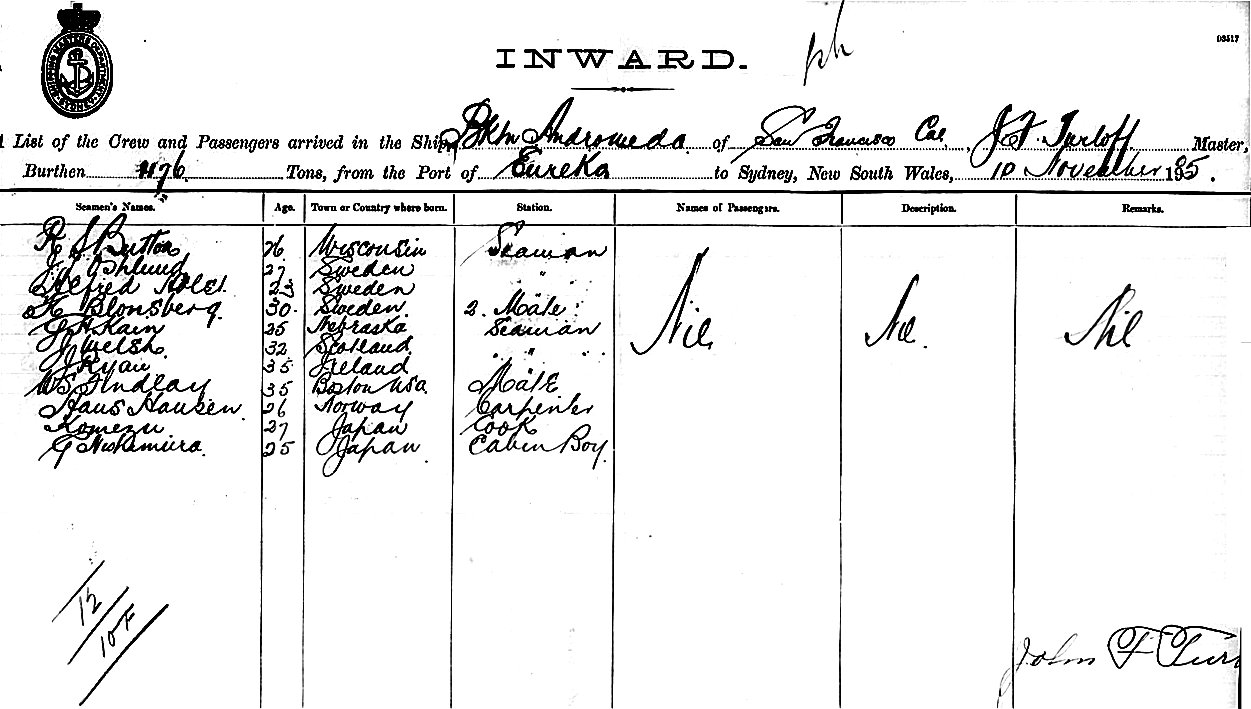 SHIPPING MASTERS DEPARTMENT
03517
INWARD.
List of the Crew and Passengers arrived in the Ship Bktn Andromeda of San Francisco Cal, J F Turloff Master,
Burthen 1176 Tons, from the Port of Eureka to Sydney, New South Wales, 10 November 1895.
Seamen's Names. Age. Town or Country where born. Station. Names of Passengers. Description. Remarks.
R S Button 26 Wisconsin Seaman
27 Sweden "
Alfred 23 Sweden
H Blonsberg. 30. Sweden. 2. Mate. Nil Nil. Nil
J H Kain 25 Nebraska Seaman
J Welsh. 32 Scotland " " "
J Ryan 35 Ireland
W S Findlay 35 Boston USA. Mate
Hans Hansen. 26 Norway Carpenter
Komezu 27 Japan Cook
G Nishimura. 25 Japan Cabin Boy.
12
10 F
John F